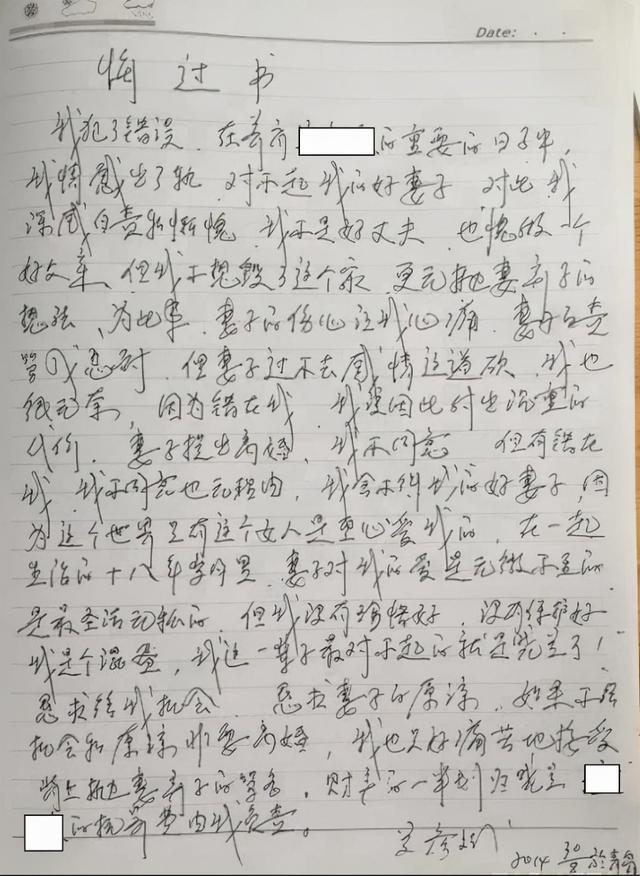 Date: . .
悔过书
我犯了错误,在养育 的重要的日子中,
我情感出了轨,对不起我的好妻子,对此我
深感自责和惭愧,我不是好丈夫,也愧做一个
好父亲,但我不想毁了这个家,更无抛妻弃子的
想法,为此事,妻子的伤心让我心痛,妻子的责
骂我忍耐,但妻子过不去感情这道砍,我也
很无奈,因为错在我,我要因此付出沉重的
代价,妻子提出离婚,我不同意 但有错在
我,我不同意也无理由,我舍不得我的好妻子,因
为这个世界只有这个女人是真心爱我的,在一起
生活的十八年岁月里,妻子对我的爱是无微不至的
是最圣洁无私的,但我没有珍惜好,没有保护好
我是个混蛋,我这一辈子最对不起的就是 了!
恳求给我机会,恳求妻子的原谅,如果不给
机会和原谅非要离婚,我也只好痛苦地接受
背上抛妻弃子的骂名,财产的一半划归
的抚养费由我负责。
2014 30/8 于青岛